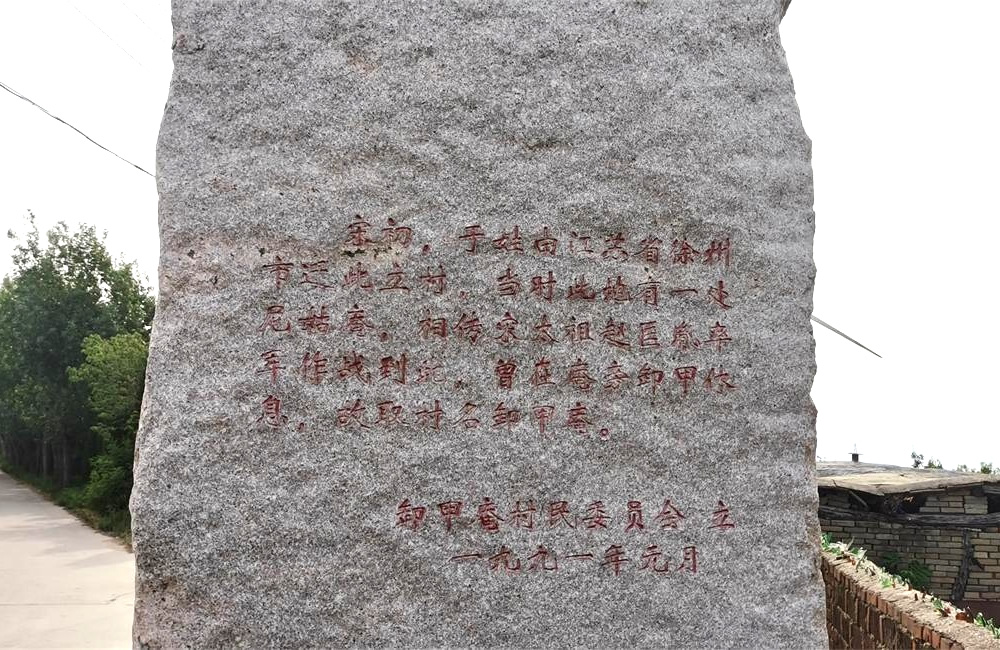 宋初，于姓由江苏省徐州
市迁此立村，当时此地有一处
尼姑庵，相传宋太祖赵匡胤率
军作战到此，曾在庵旁卸甲休
息，故取村名卸甲庵。
卸甲庵村民委员会 立
一九九一年元月